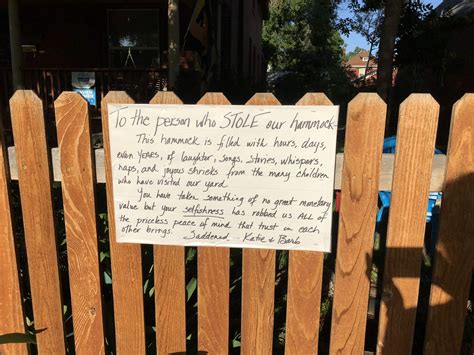 To the person who STOLE our hammock-
This hammock is filled with hours, days,
even YEARS, of laughter, songs, stories, whispers,
naps, and joyous shrieks from the many children
who have visited our yard.
You have taken something of no great monetary
value but your selfishness has robbed us ALL of
the priceless peace of mind that trust in each
other brings.
Saddened - Katie & Barb